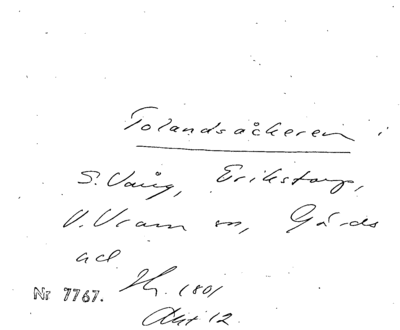 Tolandsåkeren i
S. Vång, Erikstorp,
V. Vram sn, Gärds
hd
Nr 7767. Hr. 1801
Akt 12.